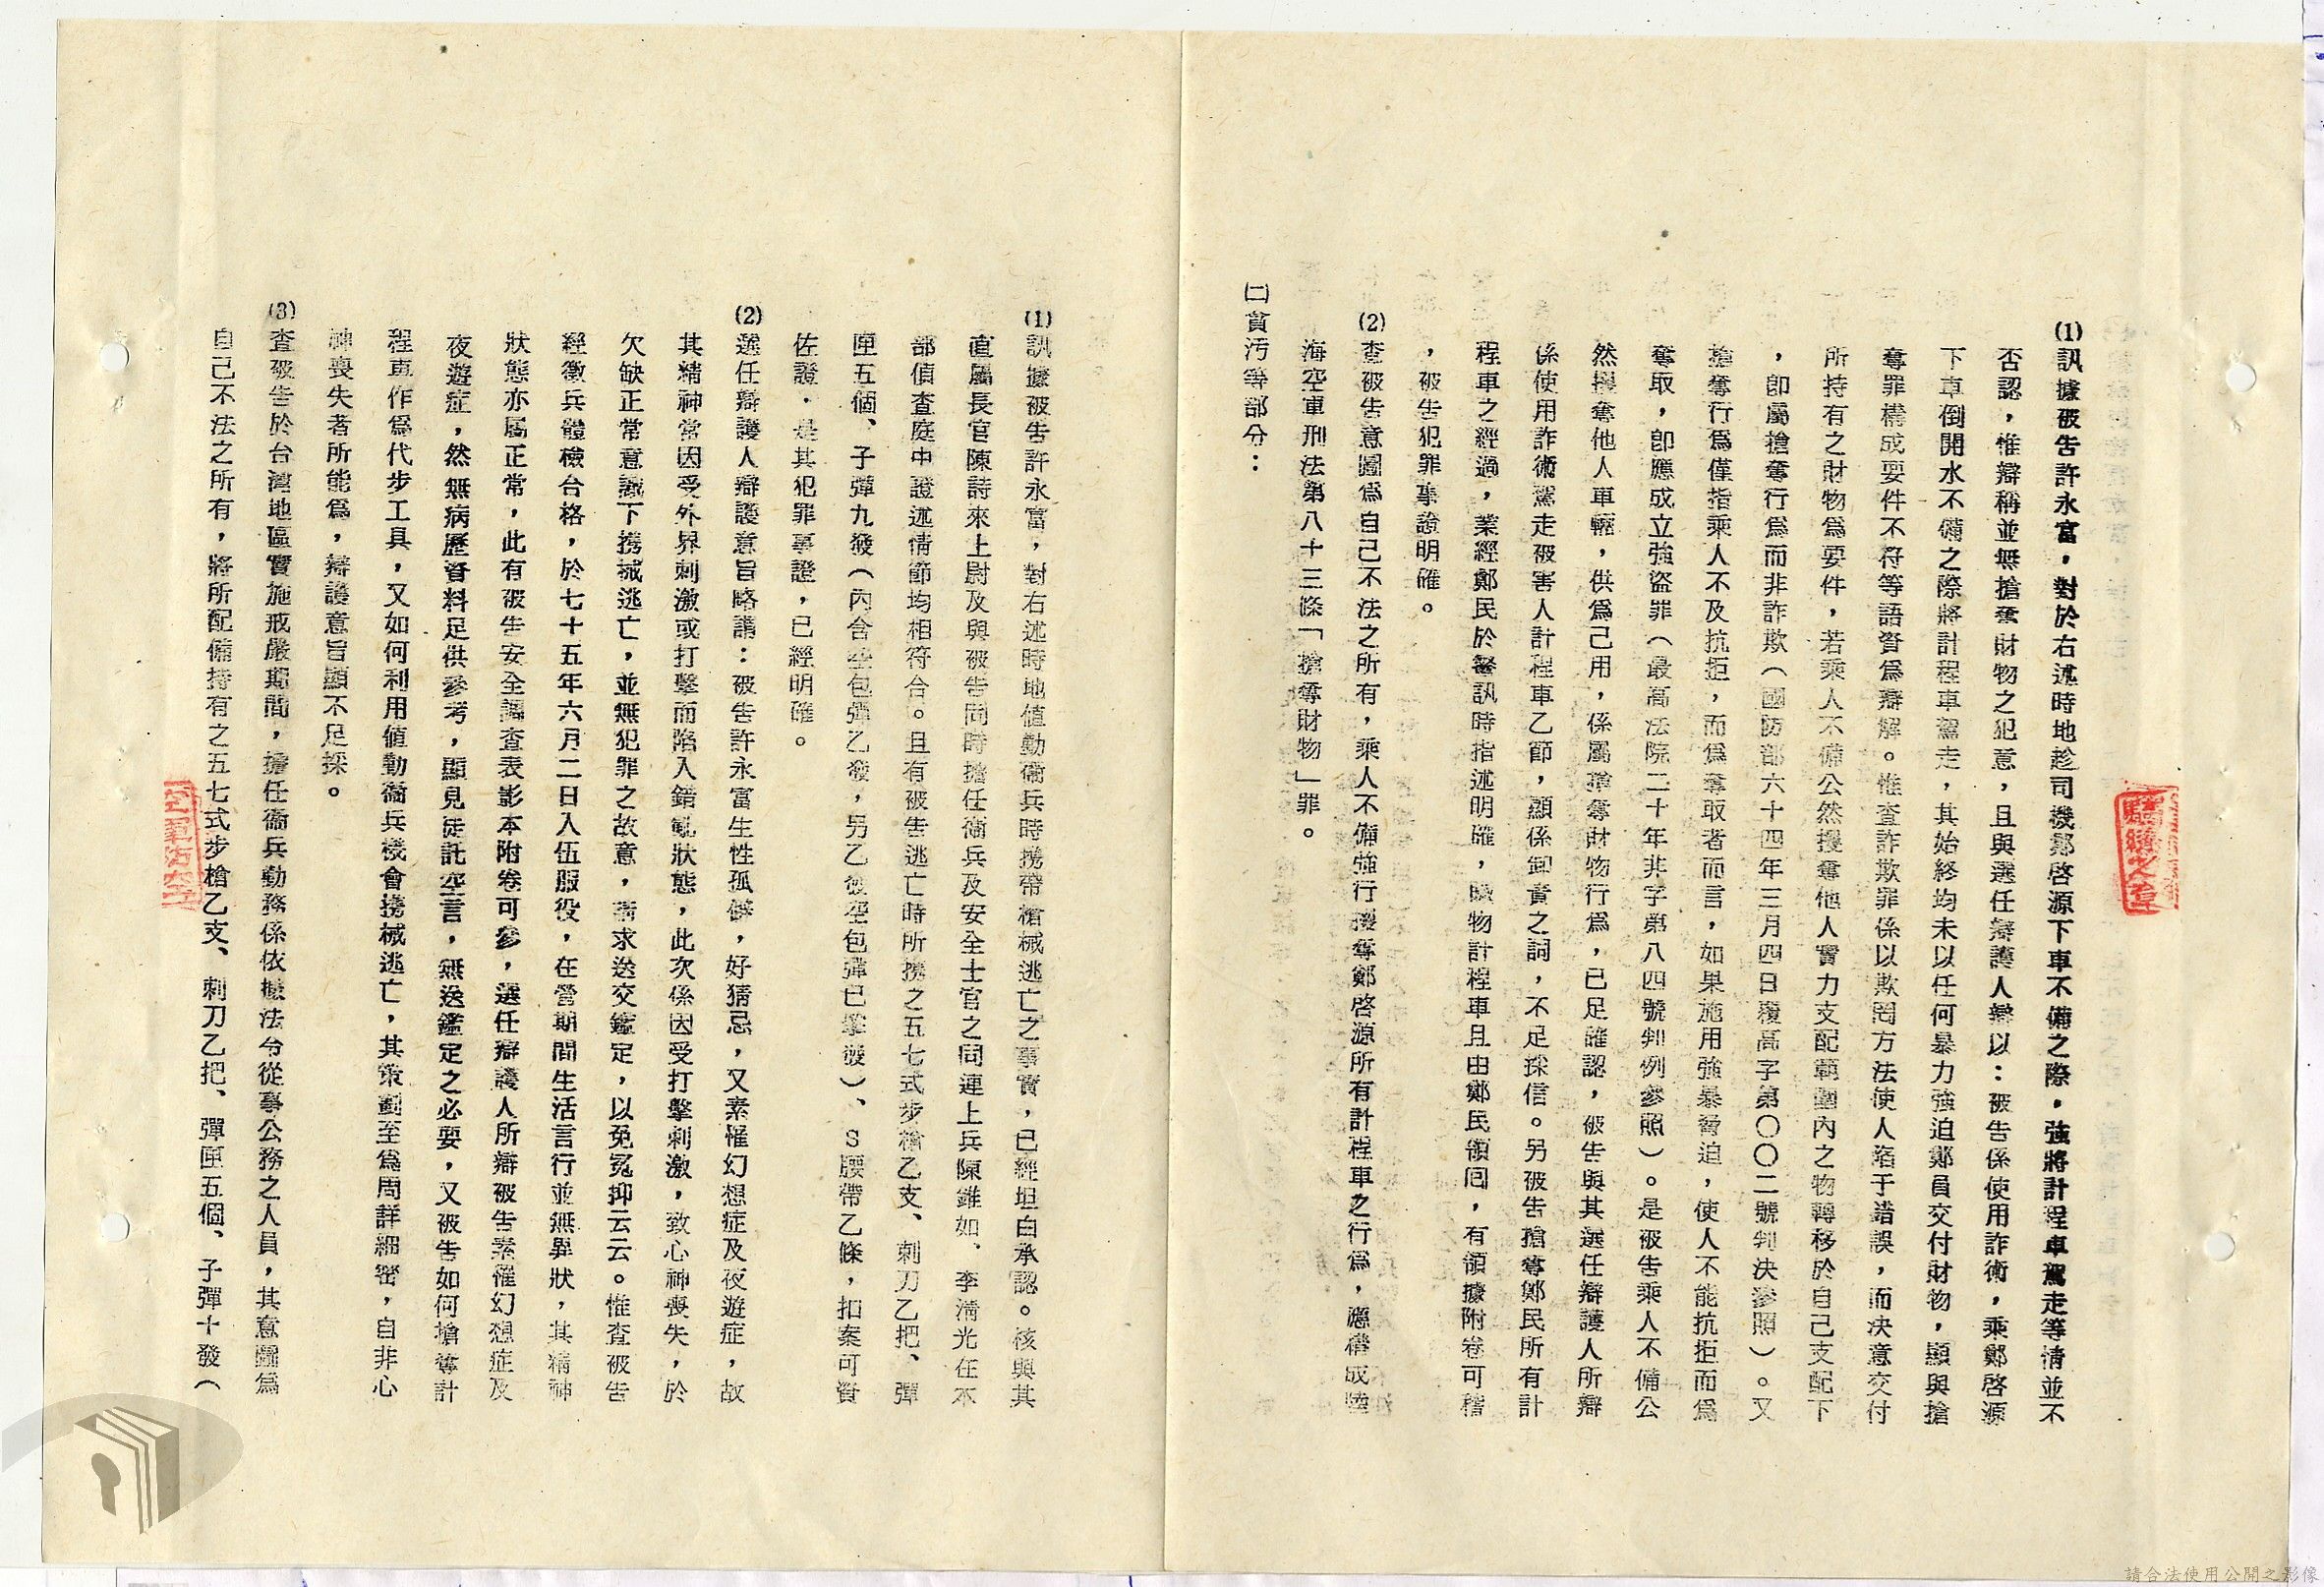 (1)訊據被告許永富，對於右述時地趁司機鄭啓源下車不備之際，強將計程車駕走等情並不
否認，惟辯稱並無搶奪財物之犯意，且與選任辯護人辯以：被告係使用詐術，乘鄭啓源
下車倒開水不備之際將計程車駕走，其始終均未以任何暴力強迫鄭員交付財物，顯與搶
奪罪構成要件不符等語資爲辯解。惟查詐欺罪係以欺罔方法使人陷于錯誤，而決意交付
所持有之財物爲要件，若乘人不備公然攫奪他人實力支配範圍內之物轉移於自己支配下
，卽屬搶奪行爲而非詐欺（國防部六十四年三月四日覆高字第〇〇二號判決參照）。又
搶奪行爲僅指乘人不及抗拒，而爲奪取者而言，如果施用強暴脅迫，使人不能抗拒而爲
奪取，卽應成立強盜罪（最高法院二十年非字第八四號判例參照）。是被告乘人不備公
然攫奪他人車輛，供爲己用，係屬搶奪財物行爲，已足確認，被告與其選任辯護人所辯
係使用詐術駕走被害人計程車乙節，顯係卸責之詞，不足採信。另被告搶奪鄭民所有計
程車之經過，業經鄭民於警訊時指述明確，贓物計程車且由鄭民領囘，有領據附卷可稽
，被告犯罪事證明確。
(2)查被告意圖爲自己不法之所有，乘人不備強行攫奪鄭啓源所有計程車之行爲，應構成陸
海空軍刑法第八十三條「搶奪財物」罪。
㈡貪污等部分：
(1)訊據被告許永富，對右述時地值勤衞兵時携帶槍械逃亡之事實，已經坦白承認。核與其
直屬長官陳詩來上尉及與被告同時擔任衞兵及安全士官之同連上兵陳錐如、李淸光在本
部偵查庭中證述情節均相符合。且有被告逃亡時所携之五七式步槍乙支、刺刀乙把、彈
匣五個、子彈九發（內含空包彈乙發，另乙發空包彈已擊發）、S腰帶乙條，扣案可資
佐證，是其犯罪事證，已經明確。
(2)選任辯護人辯護意旨略謂：被告許永富生性孤僻，好猜忌，又素罹幻想症及夜遊症，故
其精神常因受外界刺激或打擊而陷入錯亂狀態，此次係因受打擊刺激，致心神喪失，於
欠缺正常意識下携械逃亡，並無犯罪之故意，請求送交鑑定，以免冤抑云云。惟查被告
經徵兵體檢合格，於七十五年六月二日入伍服役，在營期間生活言行並無異狀，其精神
狀態亦屬正常，此有被告安全調查表影本附卷可參，選任辯護人所辯被告素罹幻想症及
夜遊症，然無病歷資料足供參考，顯見徒託空言，無送鑑定之必要，又被告如何搶奪計
程車作爲代步工具，又如何利用值勤衞兵機會携械逃亡，其策劃至爲周詳細密，自非心
神喪失者所能爲，辯護意旨顯不足採。
(3)查被告於台灣地區實施戒嚴期間，擔任衞兵勤務係依據法令從事公務之人員，其意圖爲
自己不法之所有，將所配備持有之五七式步槍乙支、刺刀乙把、彈匣五個、子彈十發（
空軍防空
騎縫之章
請合法使用公開之影像